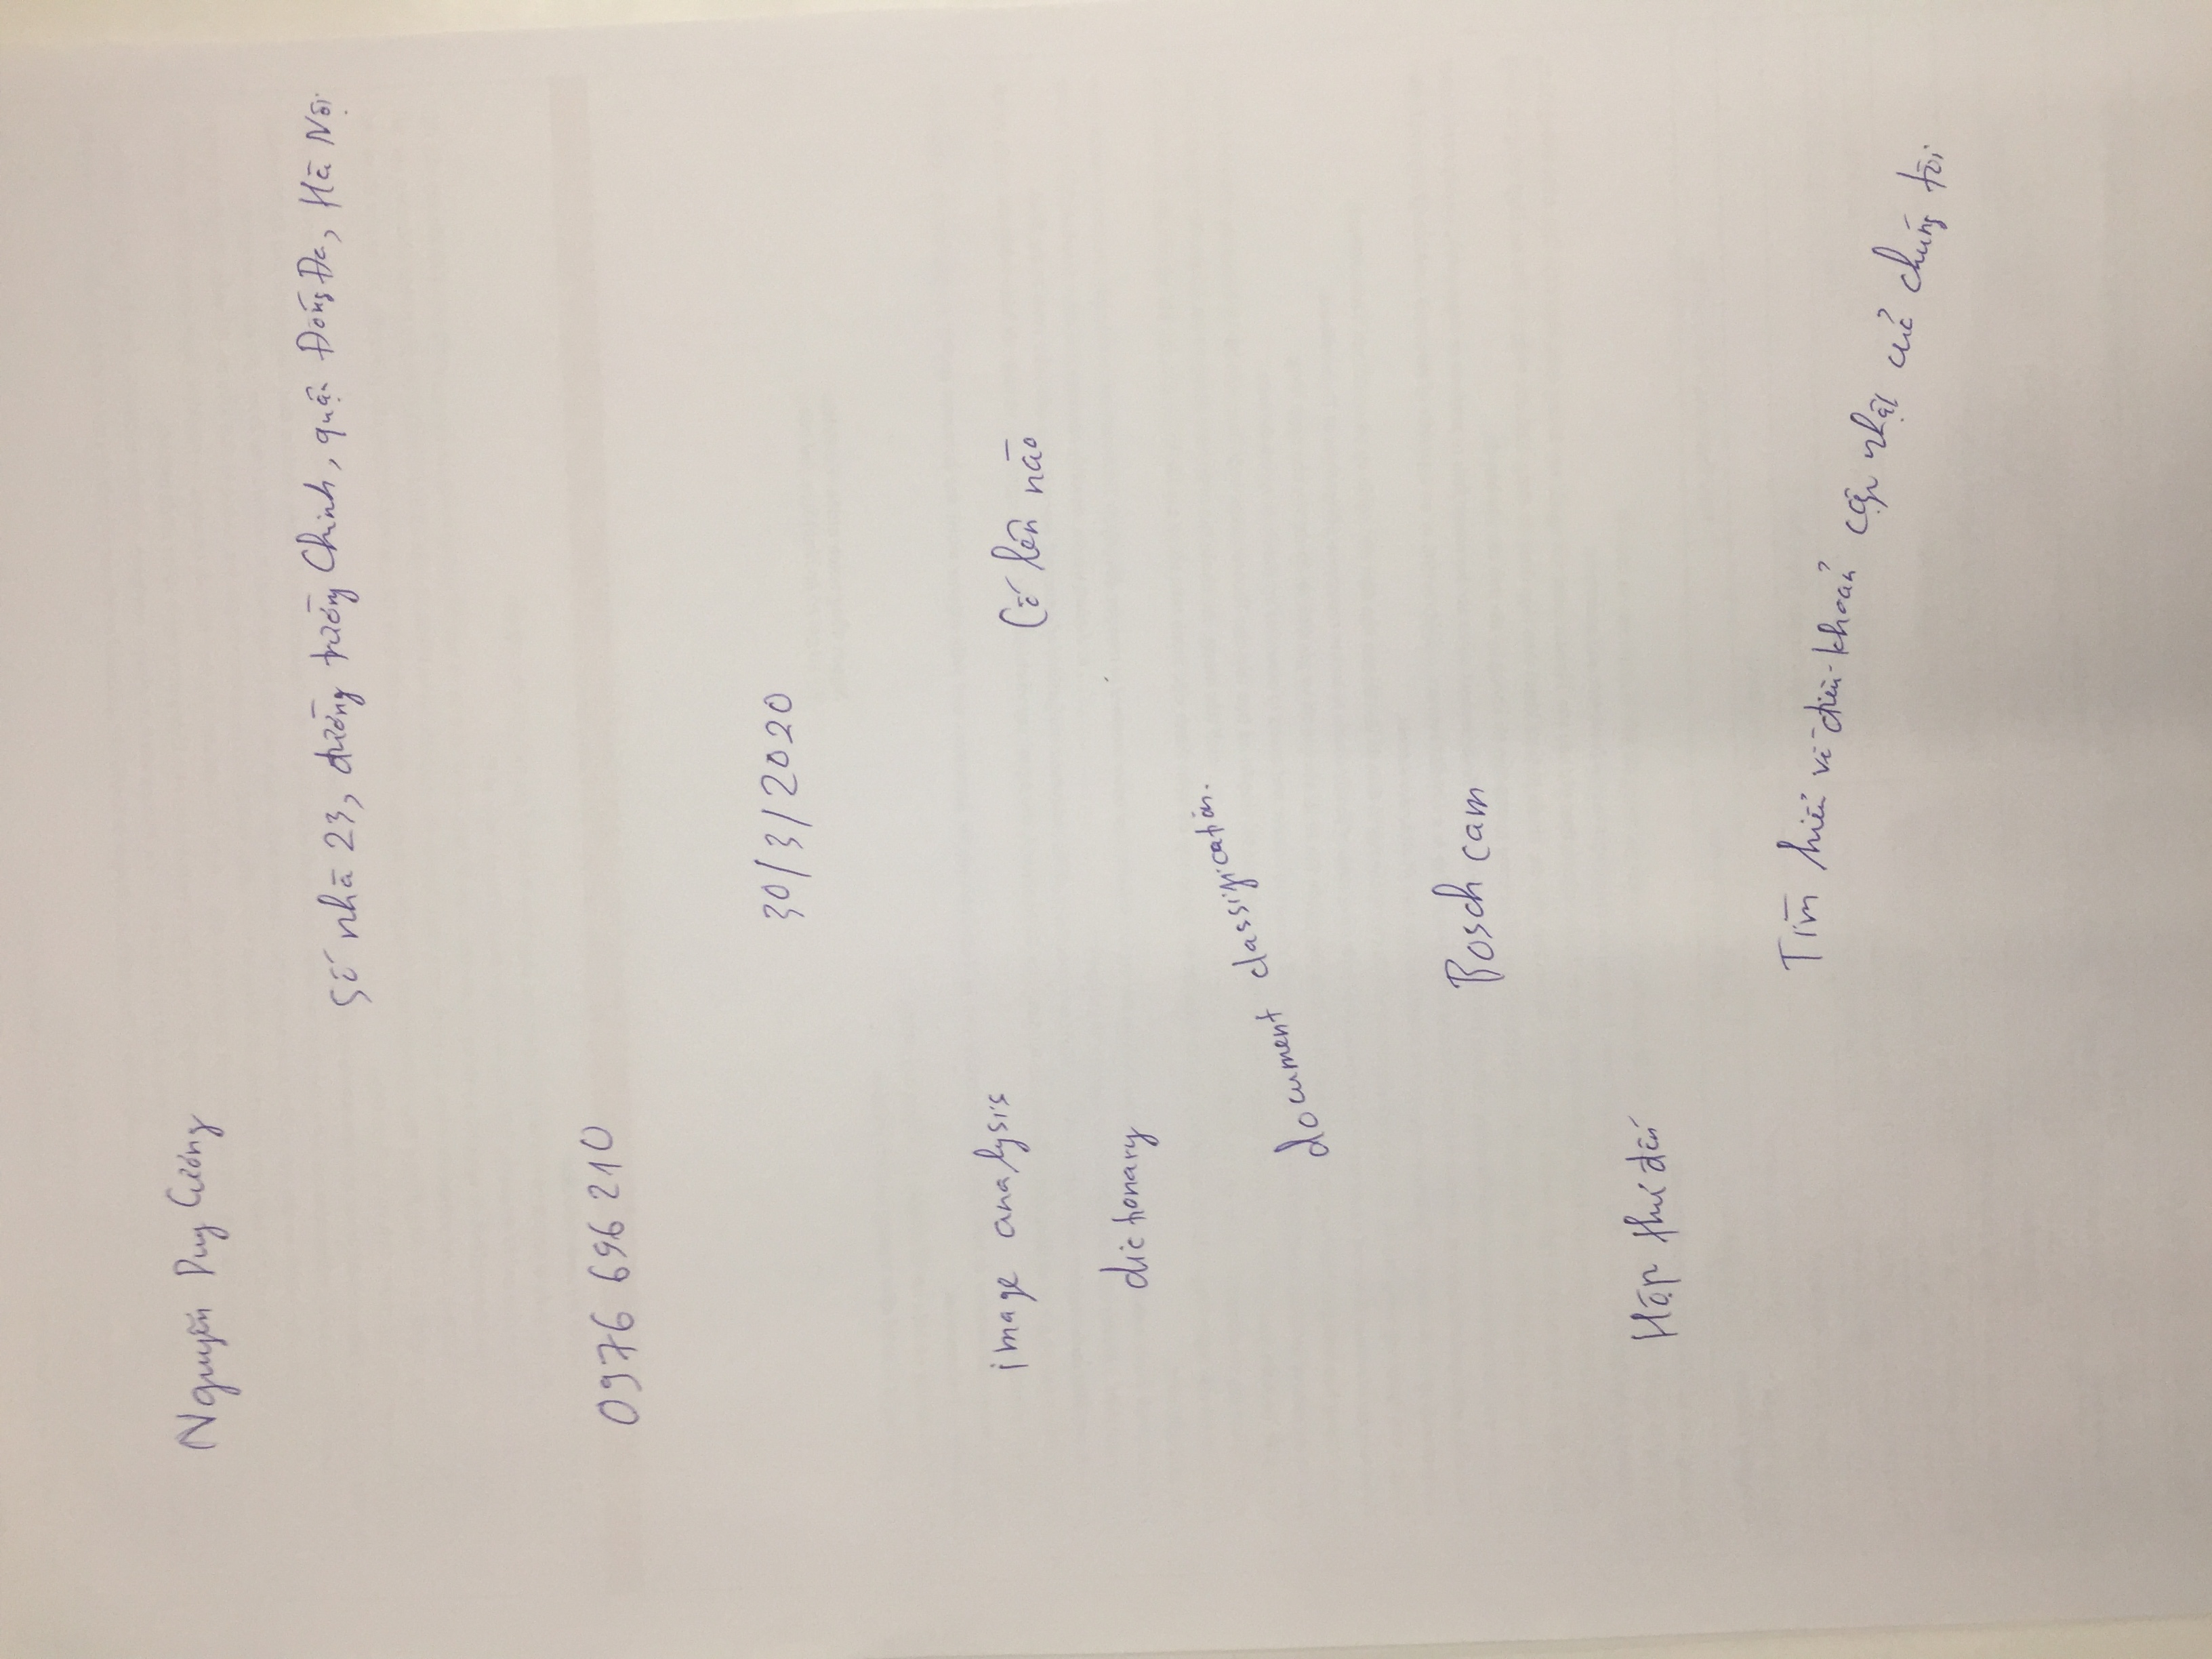 Nguyễn Duy Cương
Số nhà 23, đường trường Chinh, quận Đống Đa, Hà Nội
0976 696 210
30/3/2020
image analysis
Cố lên nào
dictionary
document classification.
Bosch cam
Hộp thư đến
Tìm hiểu về điều khoản cập nhật của chúng tôi